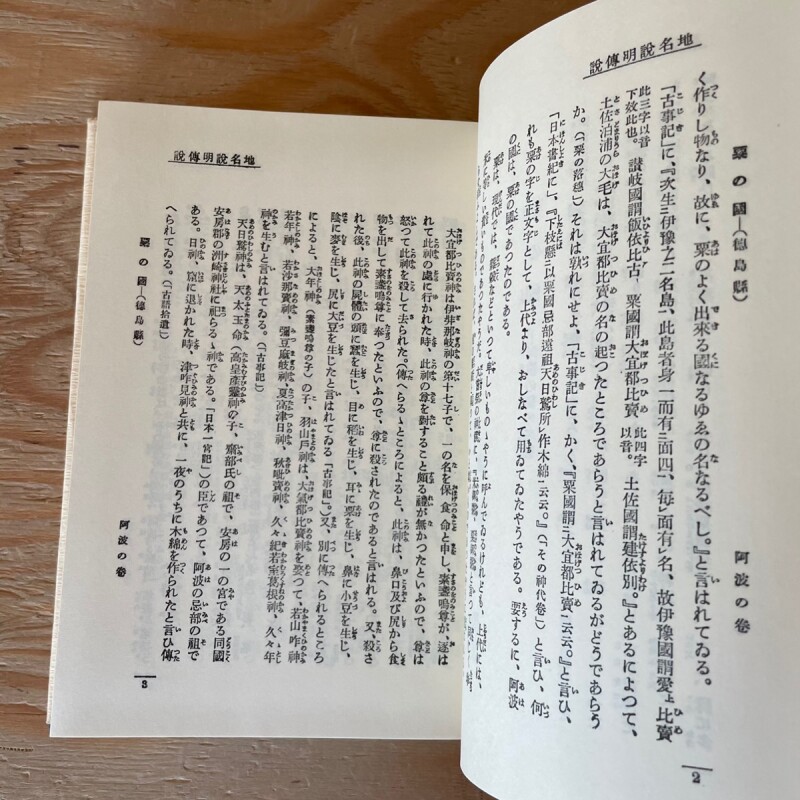 地名說明傳說
粟の國―(德島縣)
阿波の卷
く作りし物なり、故に、粟のよく出來る國なるゆゑの名なるべし。』と言はれてゐる。
「古事記」に、『次生=伊豫之二名島、此島者身一而有=面四、每レ面有レ名、故伊豫國謂愛上比賣
此三字以音
下效此也。讃岐國謂飯依比古、粟國謂大宜都比賣、此四字以音。土佐國謂建依別。』とあるによつて、
土佐泊浦の大毛は、大宜都比賣の名の起つたところであらうと言はれてゐるがどうであらう
か。(「粟の落穗」)それは孰れにせよ、「古事記」に、かく、『粟國謂=大宜都比賣=云云。』と言ひ、
「日本書紀」に、『下枝懸=以粟國忌部遠祖天日鷲所レ作木綿=云云。』(「その神代卷」)と言ひ、何
れも粟の字を正文字として、上代より、おしなべて用ゐてゐたやうである。要するに、阿波
の國は、粟の國であつたのである。
2
地名說明傳說
大宜都比賣神は伊弉那岐神の第十七子で、一の名を保食命と申し、素盞嗚尊が、逐は
れて此神の處に行かれた時、此神の尊を對すること頗る禮が無かつたといふので、尊は
怒つて此神を殺して去られた。(傳へらるゝところによると、此神は、鼻口及び尻から食
物を出して素盞嗚尊に奉つたといふので、尊に殺されたのであると言はれる。又、殺さ
れた後、此神の屍體の頭に蠶を生じ、目に稻を生じ、耳に粟を生じ、鼻に小豆を生じ、
陰に麥を生じ、尻に大豆を生じたと言はれてゐる「古事記」。)又、別に傳へられるところ
によると、大年神(素盞嗚尊の子)の子、羽山戶神は、大氣都比賣神を娶つて、若山咋神
若年神、若沙那賣神、彌豆麻岐神、夏高津日神、秋毗賣神、久々紀若室葛根神、久々年
神を生むと言はれてゐる。(「古事記」)
天日鷲神は、天太玉命(高皇產靈神の子、齋部氏の祖で、安房の一の宮である同國
安房郡の洲崎神社に祀らるゝ神である。「日本一宮記」)の臣であつて、阿波の忌部の祖で
ある。日神、窟に退かれた時、津咋見神と共に、一夜のうちに木綿を作られたと言ひ傳
へられてゐる。(「古語拾遺」)
粟の國―(德島縣)
阿波の卷
3